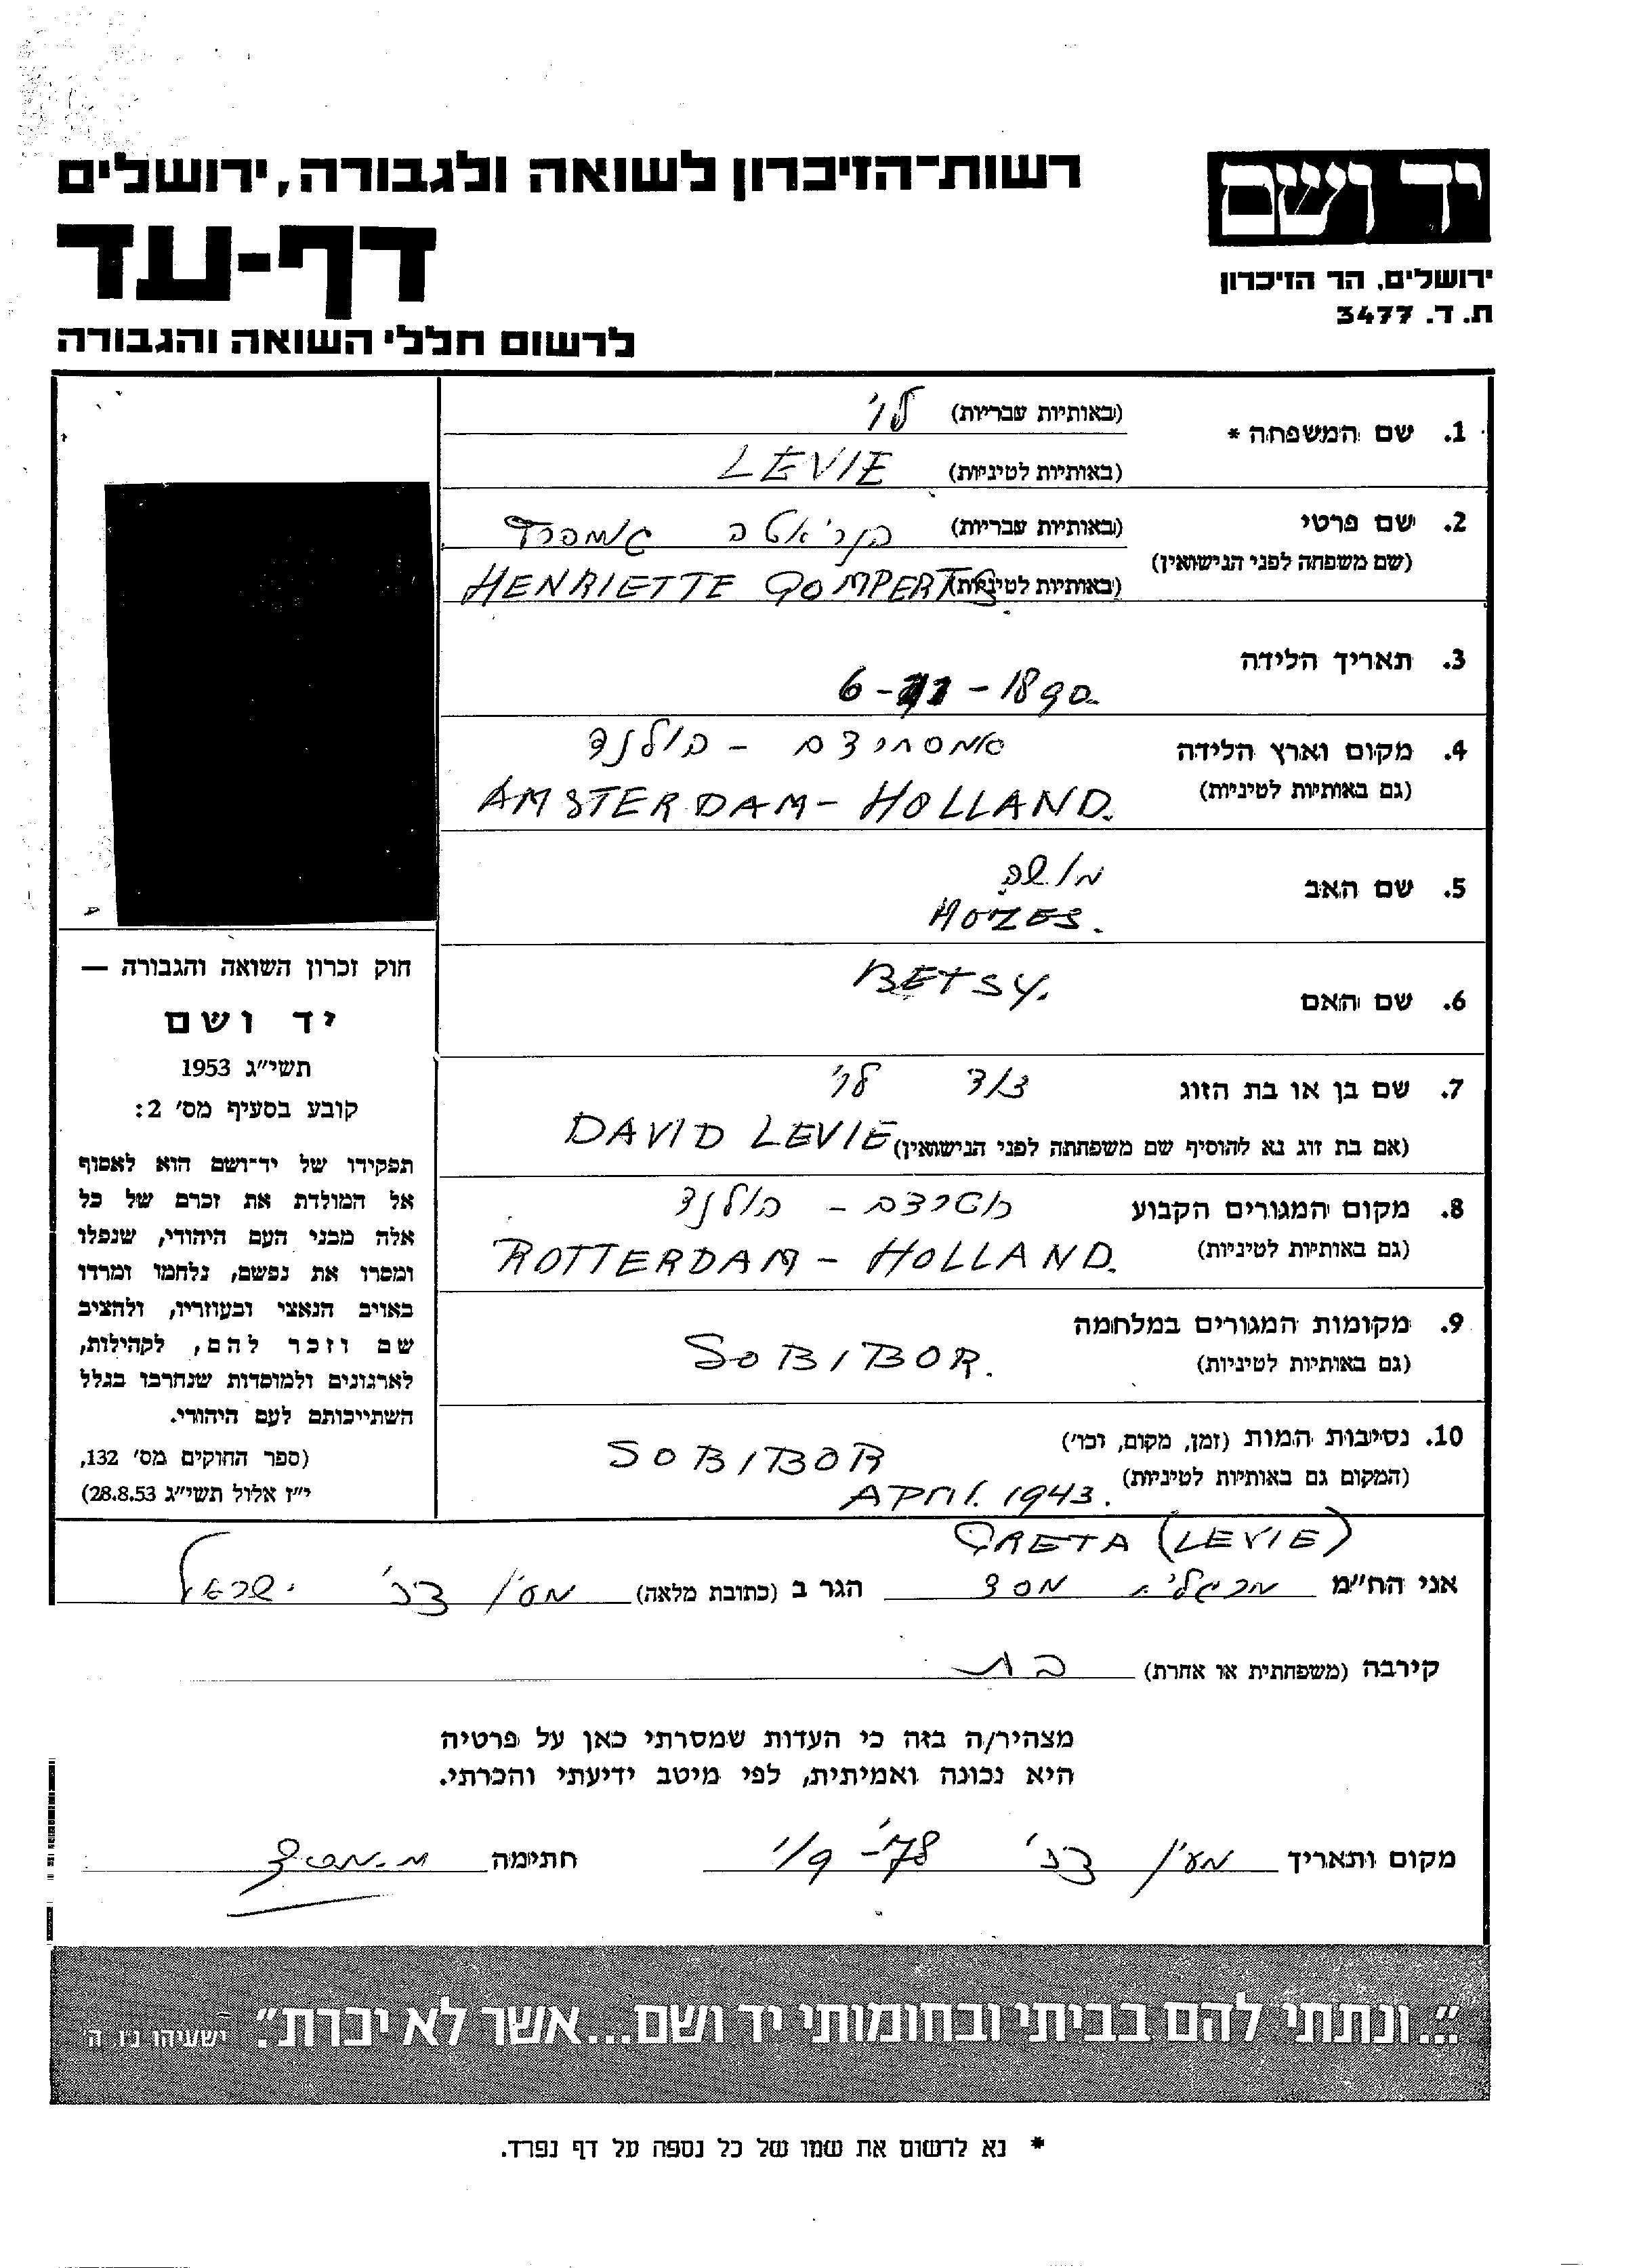 יד ושם
ירושלים, הר הזיכרון
ת. ד. 3477
רשות-הזיכרון לשואה ולגבורה, ירושלים
דף-עד
לרשום חללי השואה והגבורה
1. שם המשפחה * (באותיות עבריות) לוי
(באותיות לטיניות) LEVIE
2. שם פרטי (באותיות עבריות) הנריאטה
(שם משפחה לפני הנישואין)
(באותיות לטיניות) HENRIETTE GOMPERTS
3. תאריך הלידה
6-11-1890.
4. מקום וארץ הלידה - הולנד
(גם באותיות לטיניות) AMSTERDAM - HOLLAND.
5. שם האב
MOZES.
6. שם האם BETSY.
7. שם בן או בת הזוג דוד לוי
(אם בת זוג נא להוסיף שם משפחתה לפני הנישואין) DAVID LEVIE
8. מקום המגורים הקבוע - הולנד
(גם באותיות לטיניות) ROTTERDAM - HOLLAND.
9. מקומות המגורים במלחמה
(גם באותיות לטיניות) SOBIBOR.
10. נסיבות המות (זמן, מקום, וכו׳) SOBIBOR
(המקום גם באותיות לטיניות) APRIL 1943.
חוק זכרון השואה והגבורה —
יד ושם
תשי״ג 1953
קובע בסעיף מס׳ 2:
תפקידו של יד-ושם הוא לאסוף
אל המולדת את זכרם של כל
אלה מבני העם היהודי, שנפלו
ומסרו את נפשם, נלחמו ומרדו
באויב הנאצי ובעוזריו, ולהציב
שם וזכר להם, לקהילות,
לארגונים ולמוסדות שנחרבו בגלל
השתייכותם לעם היהודי.
(ספר החוקים מס׳ 132,
י״ז אלול תשי״ג 28.8.53)
GRETA (LEVIE)
אני הח״מ מרגלית הגר ב (כתובת מלאה) מעין צבי ישראל
קירבה (משפחתית או אחרת) בת
מצהיר/ה בזה כי העדות שמסרתי כאן על פרטיה
היא נכונה ואמיתית, לפי מיטב ידיעתי והכרתי.
מקום ותאריך מעין צבי חתימה
״...ונתתי להם בביתי ובחומותי יד ושם...אשר לא יכרת״. ישעיהו נ״ו, ה׳
* נא לרשום את שמו של כל נספה על דף נפרד.